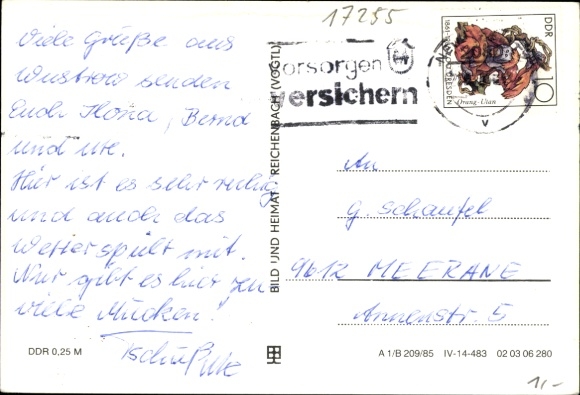 17255
Viele Grüße aus
Wustrow senden
Euch Ilona, Bernd
und Ute.
Hier ist es sehr ruhig
und auch das
Wetter spielt mit.
Nur gibt es hier zu
viele Mücken!
Tschüß Ute
DDR 0,25 M
BILD UND HEIMAT REICHENBACH (VOGTL)
vorsorgen
versichern
DDR
10
Orang-Utan
An
G. Schaufel
9612 MEERANE
Annenstr. 5
A 1/B 209/85 IV-14-483 02 03 06 280
1,-